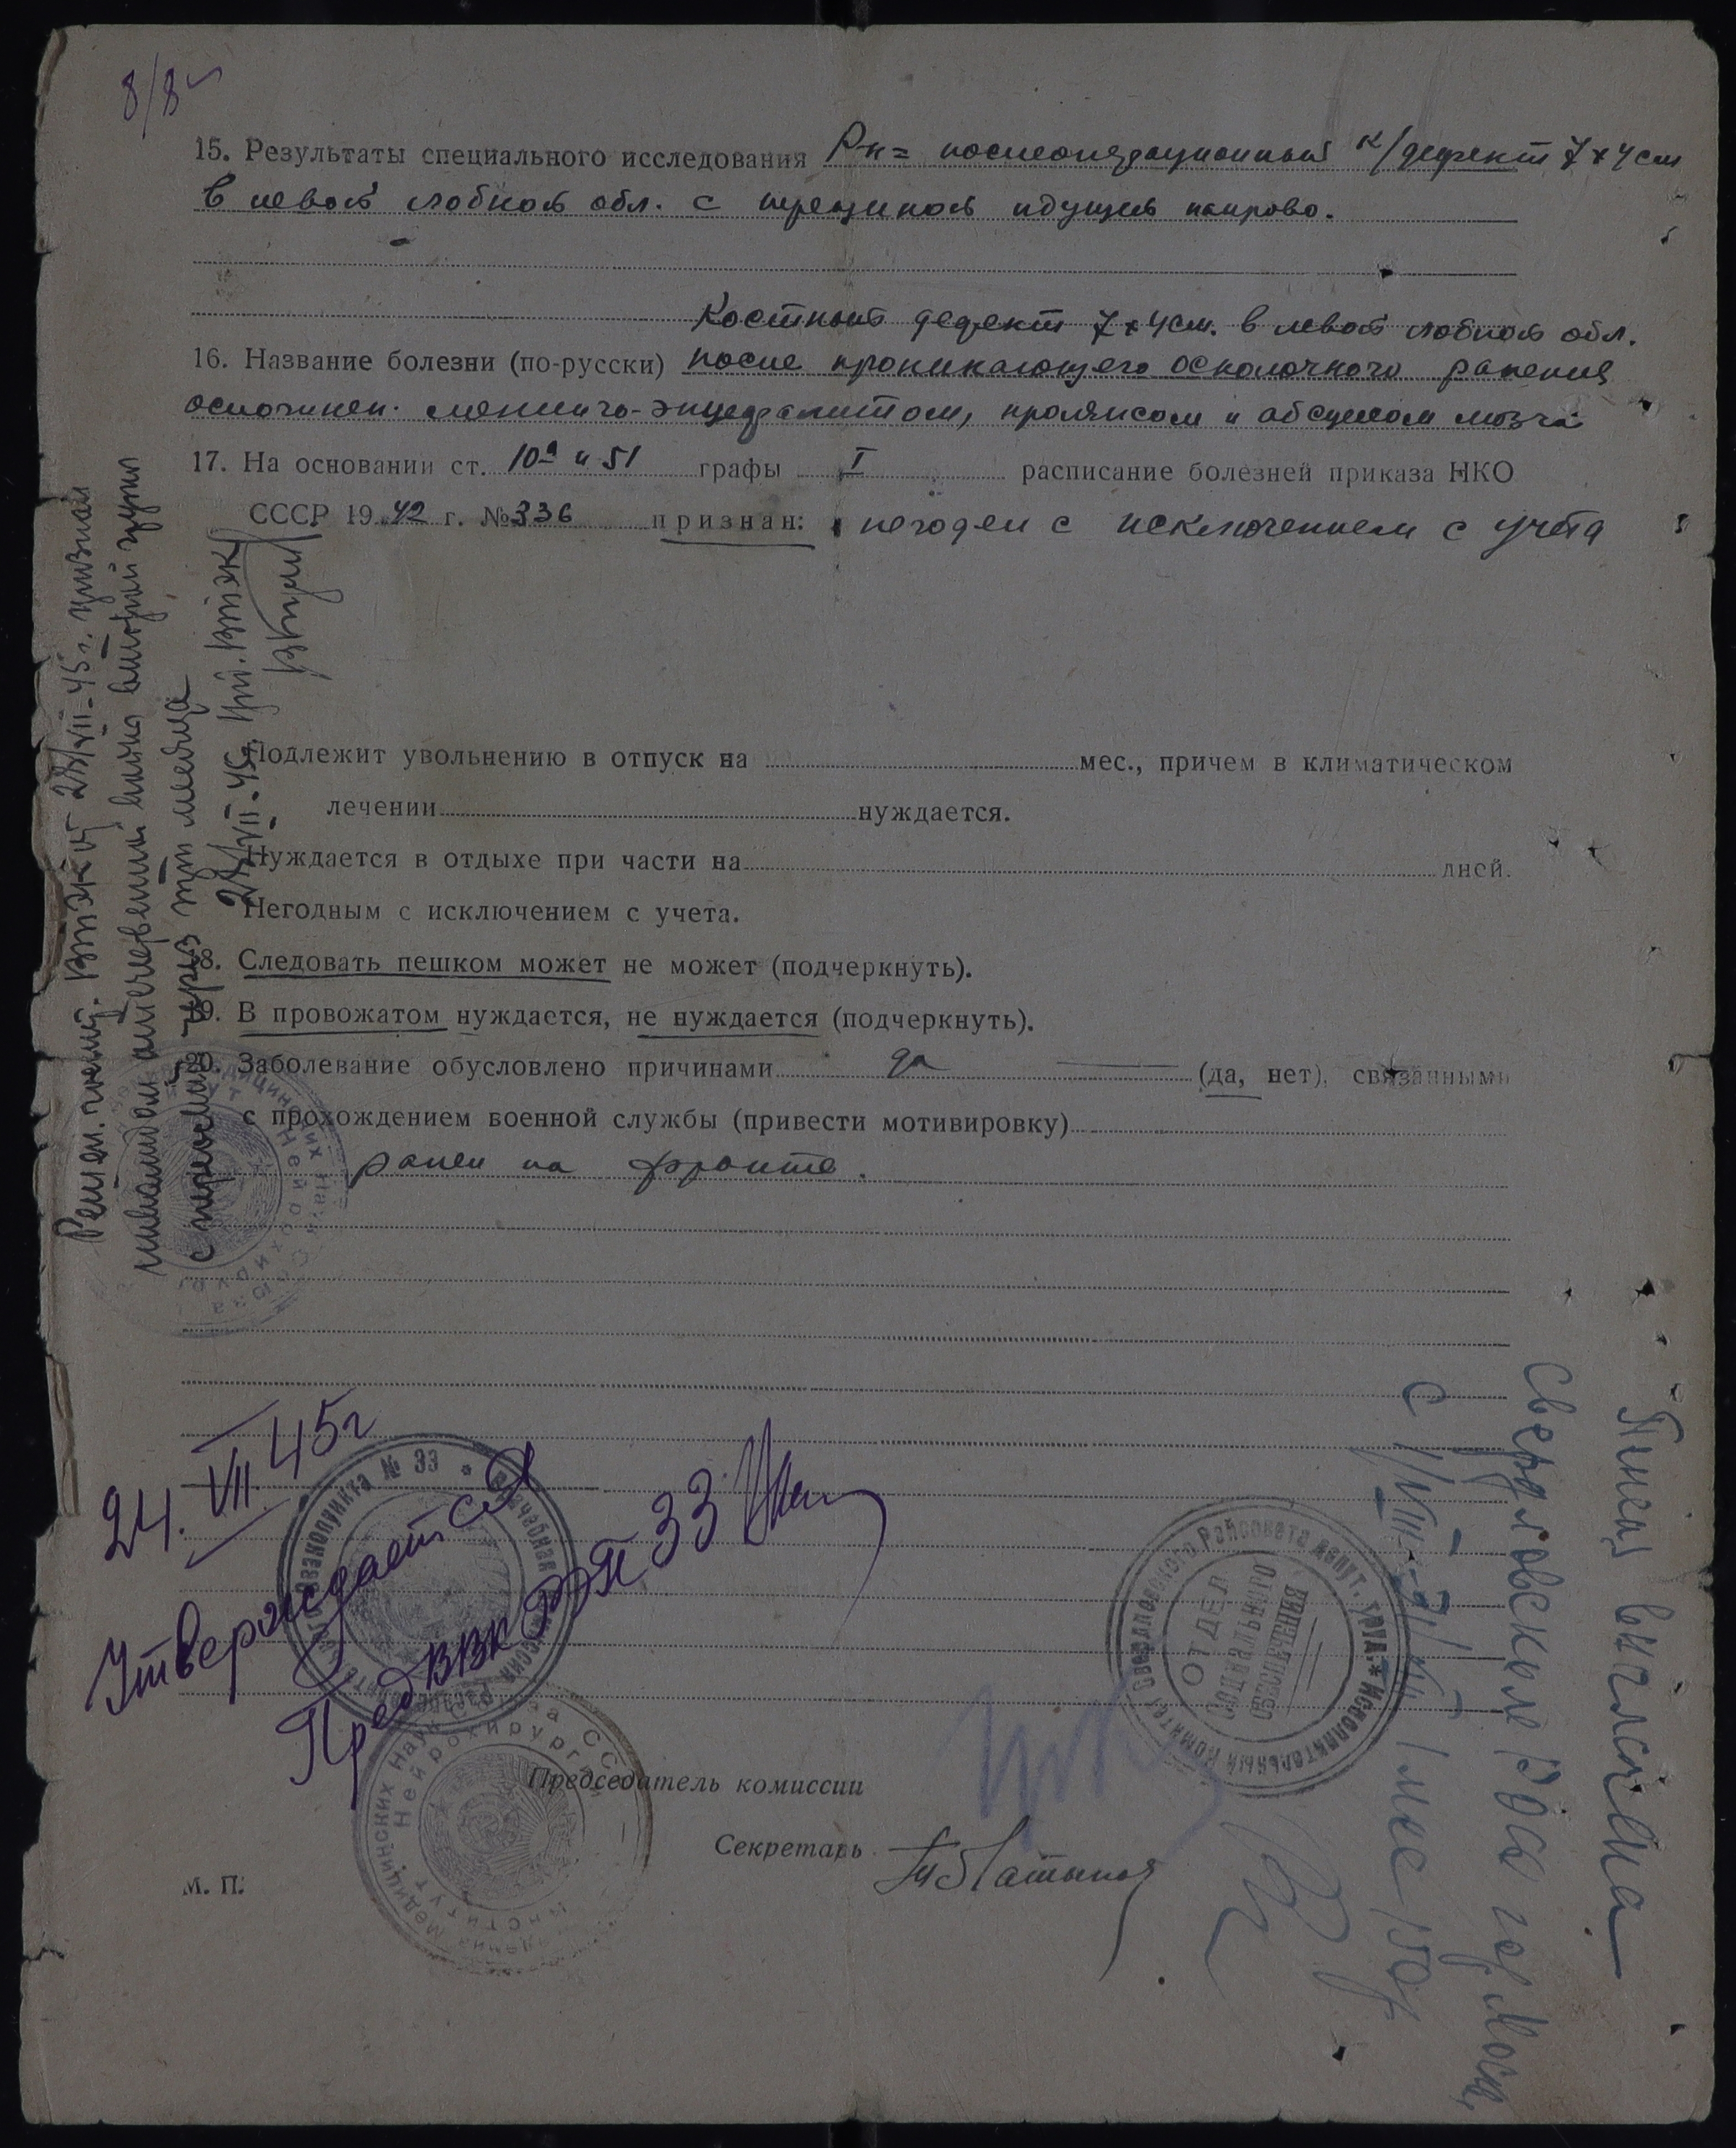 8/8
15. Результаты специального исследования Р-н= послеоперационный к/дефект 7×4см
в левой лобной обл. с трещиной идущей направо.
Костный дефект 7×4см. в левой лобной обл.
16. Название болезни (по-русски) после проникающего осколочного ранения
осложнен. менинго-энцефалитом, пролапсом и абсцессом мозга
17. На основании ст. 10а и 51 графы I расписание болезней приказа НКО
СССР 1942 г. № 336 признан: негоден с исключением с учета
Подлежит увольнению в отпуск на мес., причем в климатическом
лечении нуждается.
Нуждается в отдыхе при части на дней.
Негодным с исключением с учета.
18. Следовать пешком может не может (подчеркнуть).
19. В провожатом нуждается, не нуждается (подчеркнуть).
20. Заболевание обусловлено причинами да (да, нет), связанными
с прохождением военной службы (привести мотивировку)
ранен на фронте.
Решен. ВТЭК 28/VII-45г. признан
инвалидом отечественной войны второй группы
с через три месяца
28/VII-45г. ВТЭК
24.VII.45г
Утверждается
Пред ВВК РЭП 33
Врачебная комиссия Распределительного эвакопункта № 33
Академия Медицинских Наук Союза ССР
Институт Нейрохирургии
Председатель комиссии
Секретарь
М. П.
Исполнительный Комитет Свердловского Райсовета депут. труд.
ОТДЕЛ
СОЦИАЛЬНОГО
ОБЕСПЕЧЕНИЯ
Пенсия
Свердловском РОСО гор. Моск.
с 1/VIII-